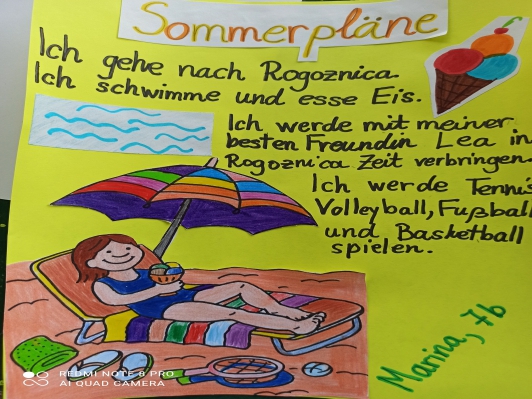 Sommerpläne
Ich gehe nach Rogoznica.
Ich schwimme und esse Eis.
Ich werde mit meiner
besten Freundin Lea in
Rogoznica Zeit verbringen.
Ich werde Tennis
Volleyball, Fußball
und Basketball
spielen.
Marina, 7b
REDMI NOTE 8 PRO
AI QUAD CAMERA